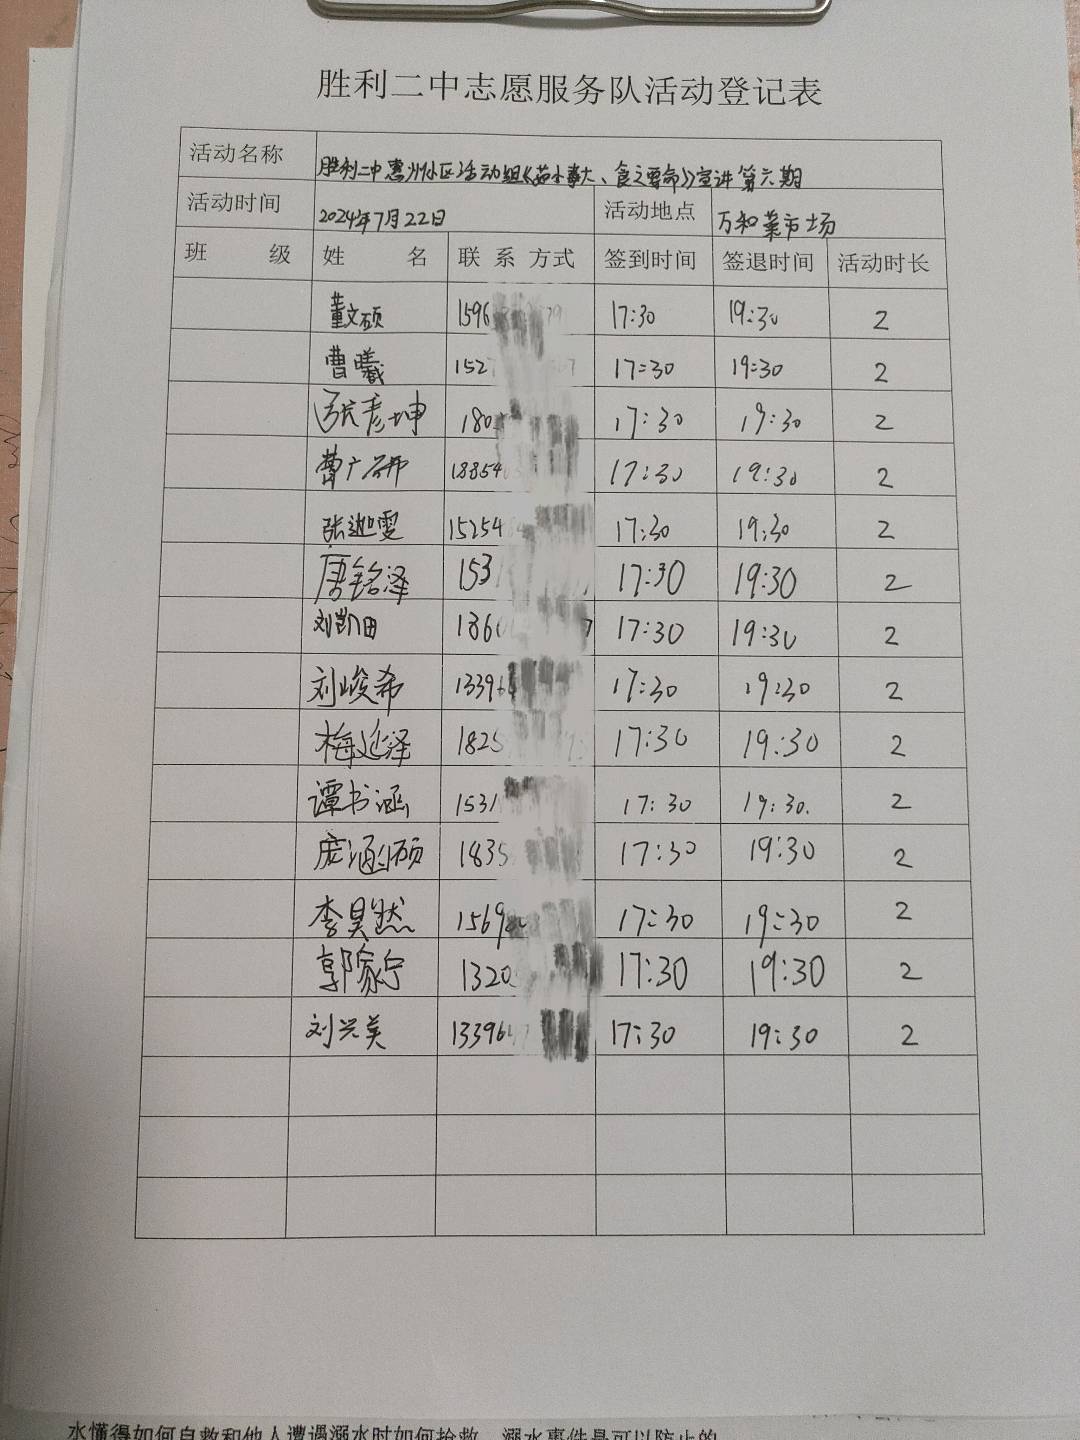 胜利二中志愿服务队活动登记表
活动名称 胜利二中惠州小区活动组《菇小事大、食之要命》宣讲第六期
活动时间 2024年7月22日 活动地点 万和菜市场
班 级 姓 名 联 系 方式 签到时间 签退时间 活动时长
董文硕 1596 17:30 19:30 2
曹曦 1527 17:30 19:30 2
张彦坤 180 17:30 19:30 2
曹广研 18854 17:30 19:30 2
张迦雯 15254 17:30 19:30 2
唐铭泽 1531 17:30 19:30 2
刘凯田 1860 17:30 19:30 2
刘峻希 13396 17:30 19:30 2
梅延泽 1825 17:30 19:30 2
谭书涵 1531 17:30 19:30. 2
庞涵硕 1835 17:30 19:30 2
李昊然 1569 17:30 19:30 2
郭家宁 1320 17:30 19:30 2
刘兴美 13396 17:30 19:30 2
水懂得如何自救和他人遭遇溺水时如何抢救，溺水事件是可以防止的